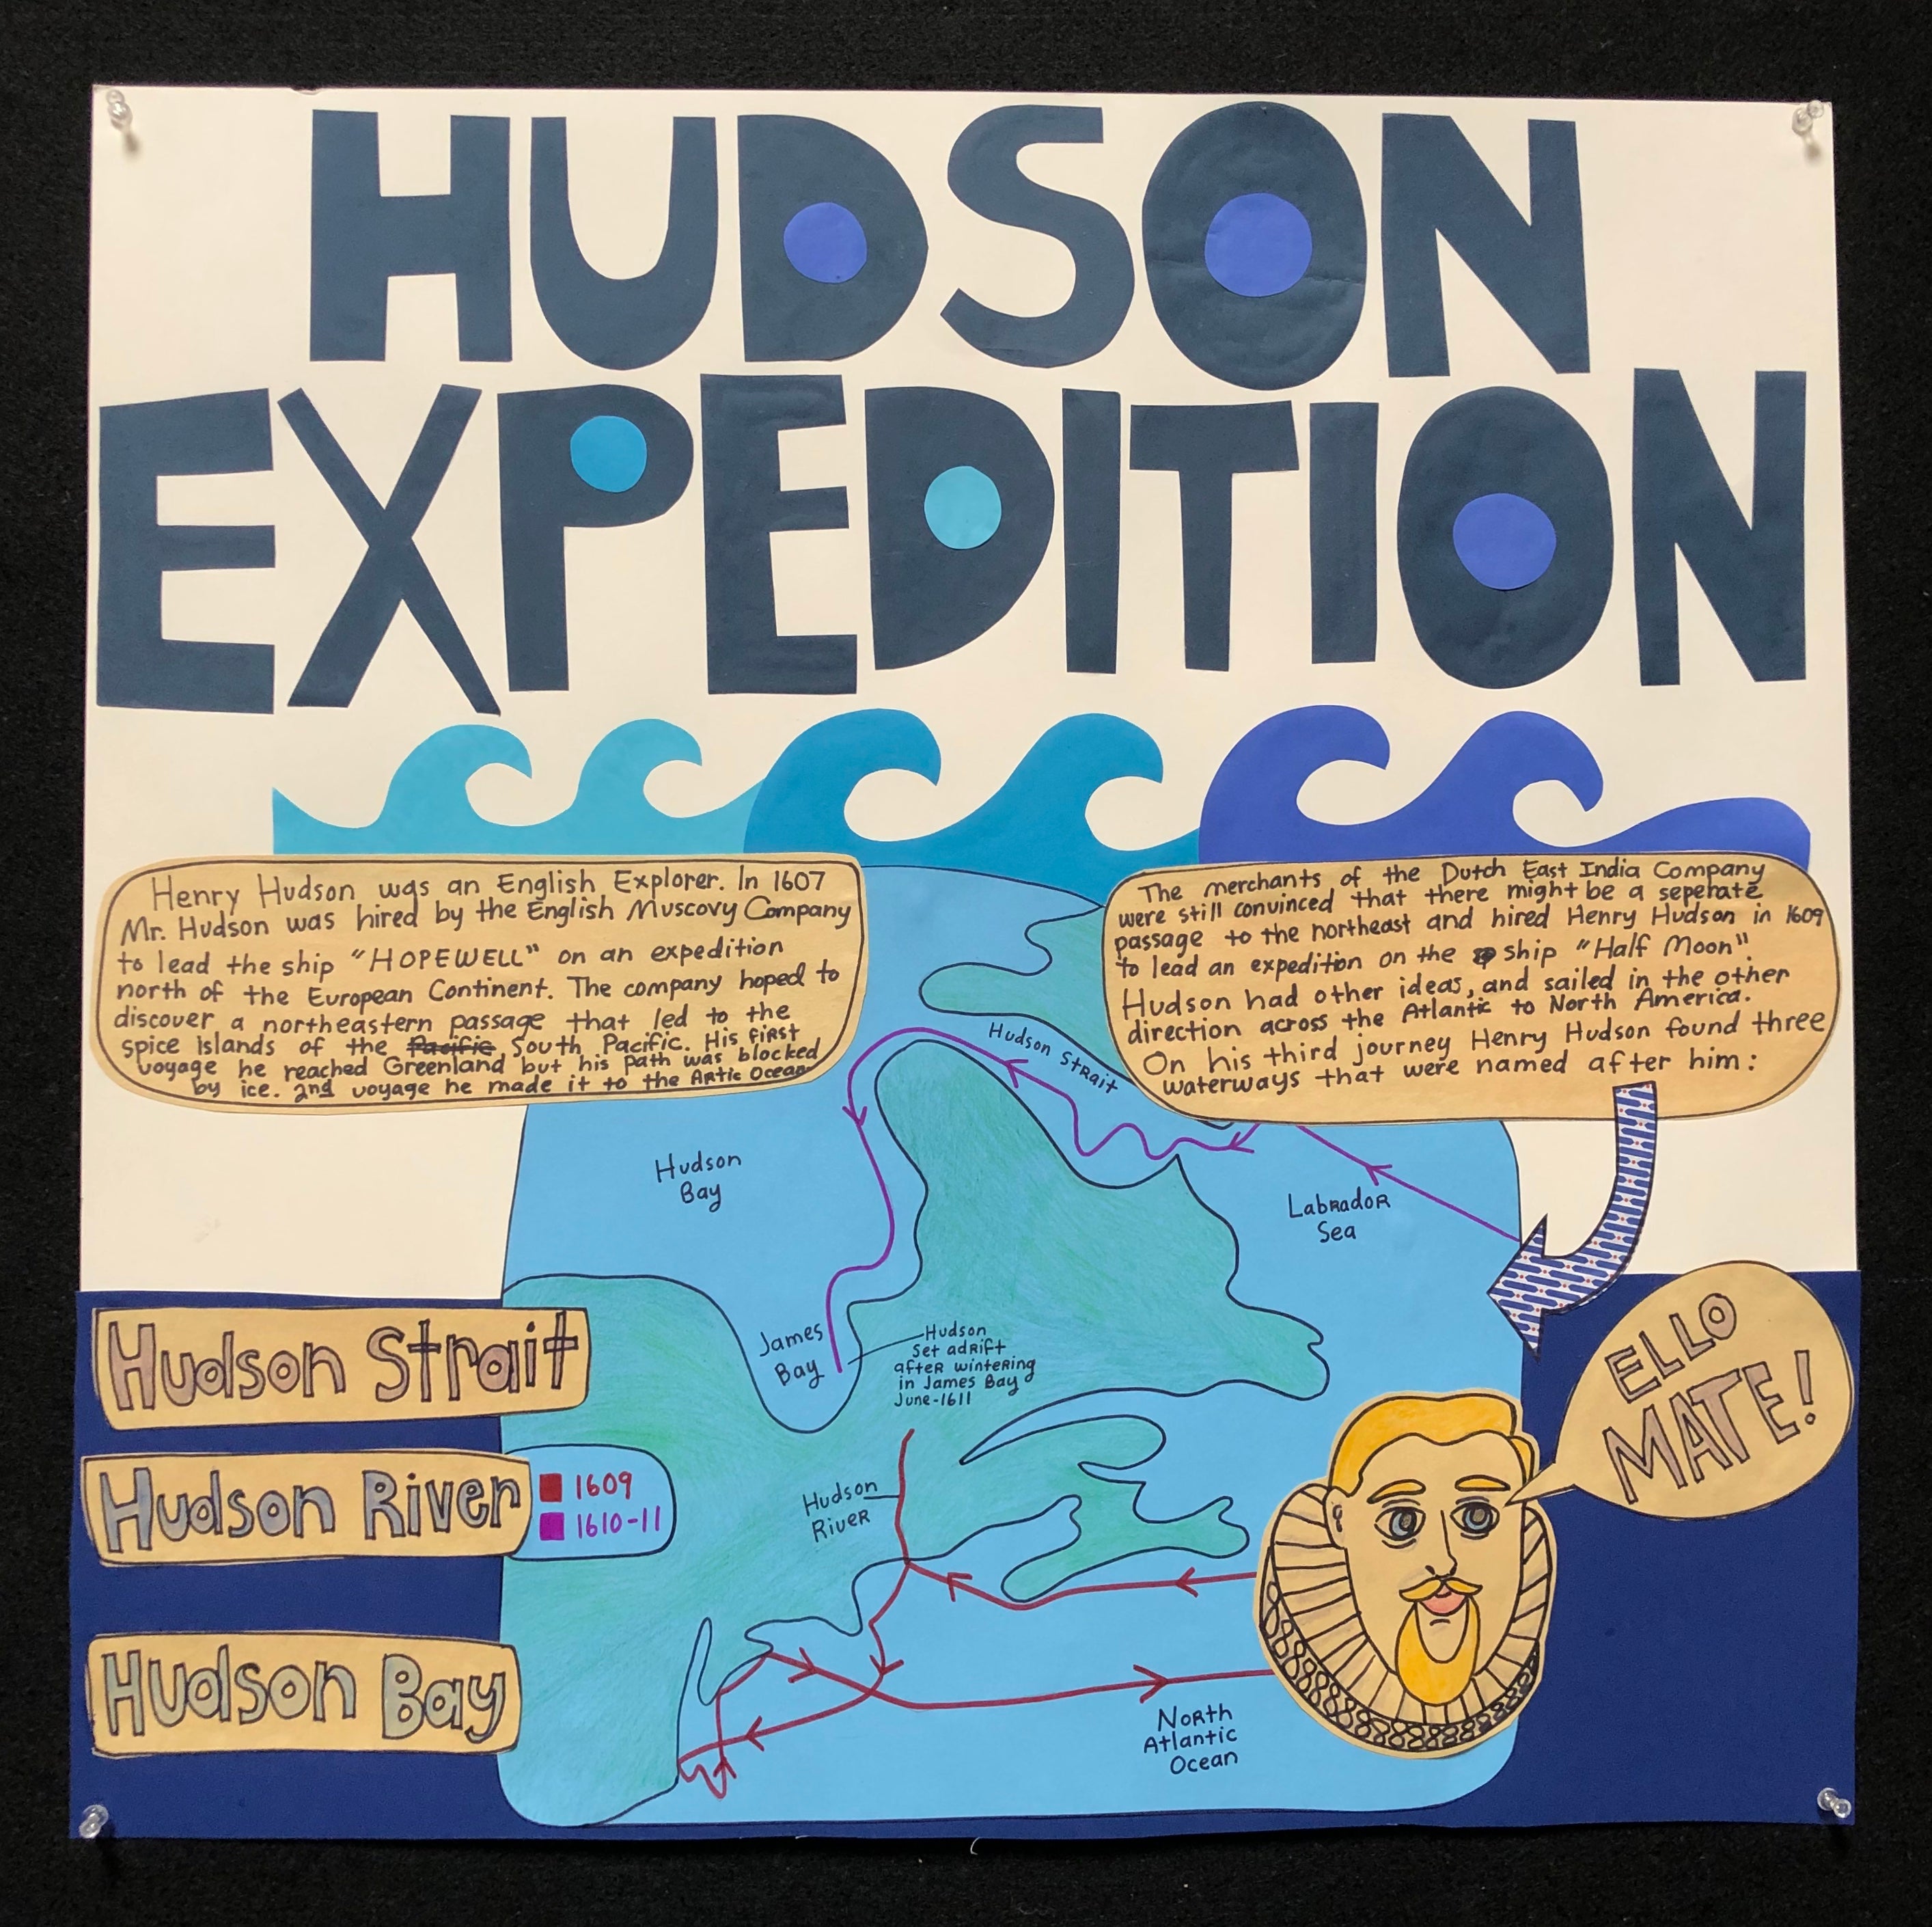 HUDSON
EXPEDITION
Henry Hudson was an English Explorer. In 1607
Mr. Hudson was hired by the English Muscovy Company
to lead the ship "HOPEWELL" on an expedition
north of the European Continent. The company hoped to
discover a northeastern passage that led to the
spice islands of the Pacific South Pacific. His first
voyage he reached Greenland but his path was blocked
by ice. 2nd voyage he made it to the Artic Ocean
The merchants of the Dutch East India Company
were still convinced that there might be a seperate
passage to the northeast and hired Henry Hudson in 1609
to lead an expedition on the ship "Half Moon".
Hudson had other ideas, and sailed in the other
direction across the Atlantic to North America.
On his third journey Henry Hudson found three
waterways that were named after him:
Hudson Strait
Hudson
Bay
Labrador
Sea
James
Bay
Hudson
Set adrift
after wintering
in James Bay
June-1611
Hudson Strait
Hudson River
Hudson Bay
1609
1610-11
Hudson
River
North
Atlantic
Ocean
ELLO
MATE!